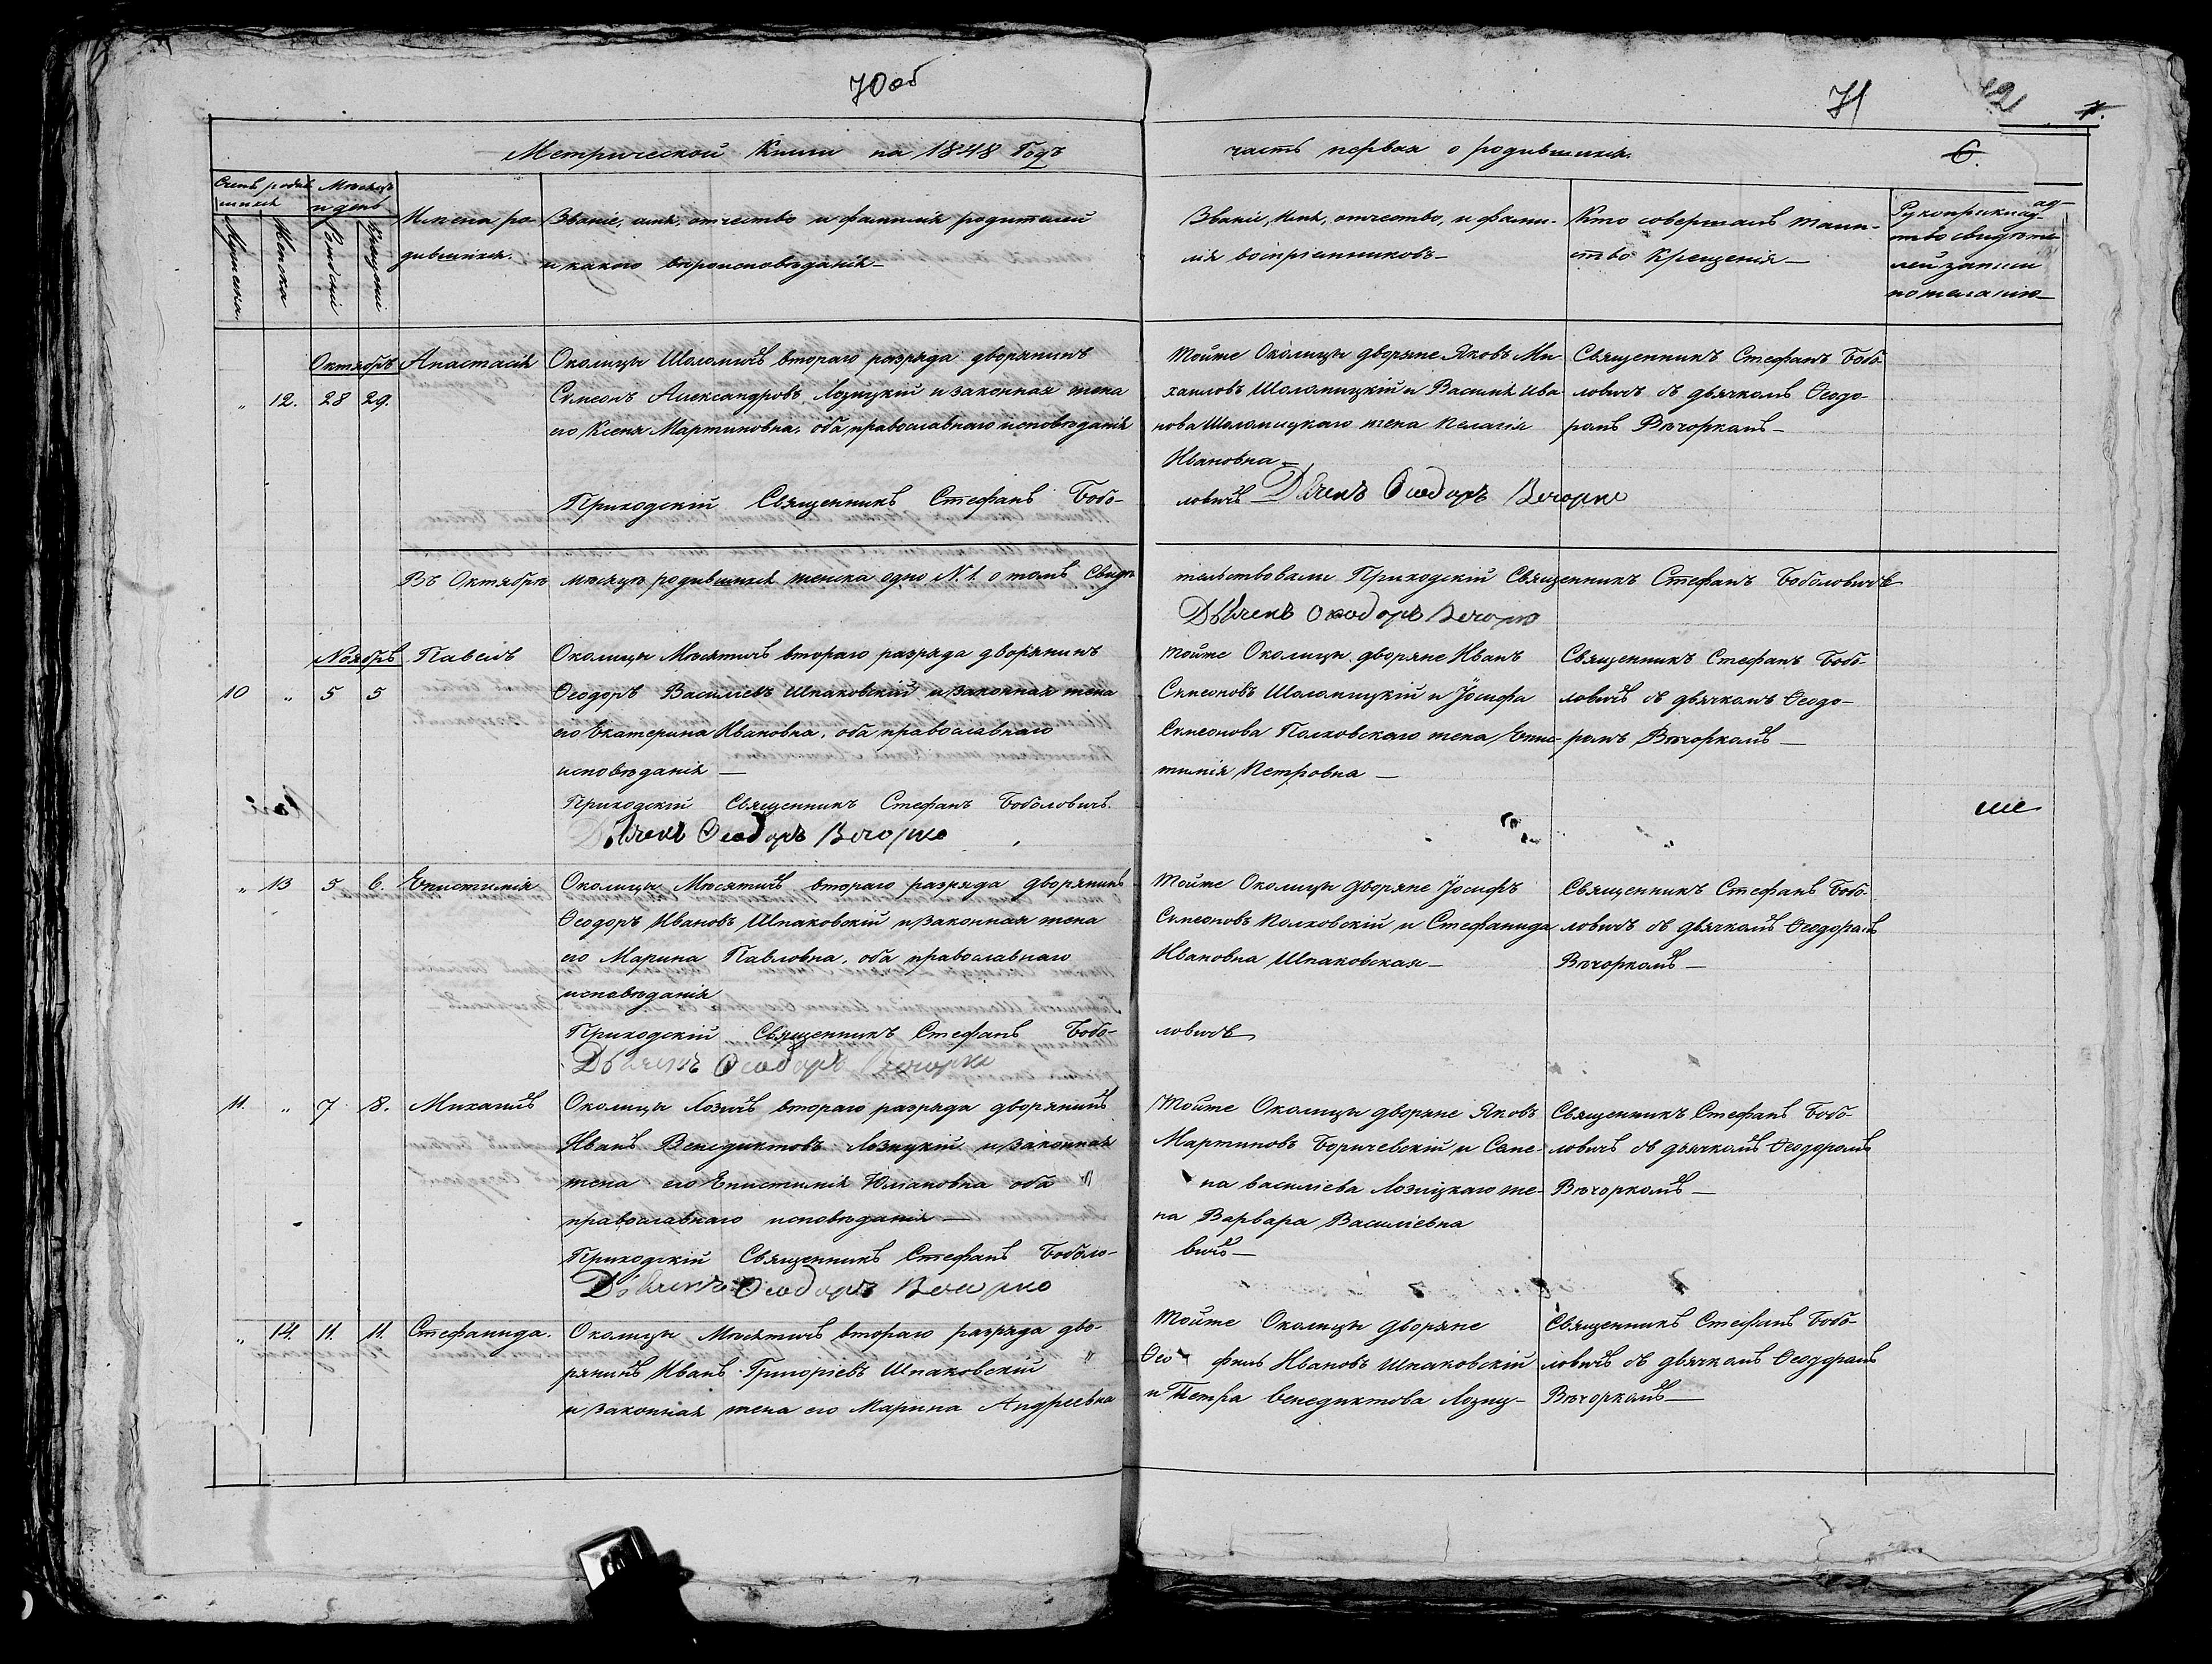 70 об
71
Метрической Книги на 1848 Годъ
часть первая о родившихся.
6.
Счетъ родив-
шихся
Мужеска
Женска
Мѣсяцъ
и день
Рожденія
Крещенія
Имена ро-
дившихся.
Званіе, имя, отчество и фамилія родителей
и какого вѣроисповѣданія
Званіе, имя, отчество, и фами-
лія воспріемниковъ
Кто совершалъ таин-
ство Крещенія
Рукоприклад-
ство свидѣте-
лей записи
по желанію
Октябрь
" 12. 28 29.
Анастасія
Околицы Шоломичъ втораго разряда дворянинъ
Симеонъ Александровъ Лозицкій и законная жена
его Ксенія Мартиновна, оба православнаго исповѣданія
Приходскій Священникъ Стефанъ Бобо-
тойже Околицы дворяне Яковъ Ми-
хаиловъ Шоломицкій и Василія Ива
нова Шоломицкаго жена Пелагія
Ивановна
ловичъ Дьячекъ Ѳеодоръ Вечорко
Священникъ Стефанъ Бобо-
ловичъ съ дьячкомъ Ѳеодо-
ромъ Вѣчоркомъ
Въ Октябрѣ мѣсяцѣ родившихся женска одно N. 1. о томъ Свидѣ
тельствовали Приходскій Священникъ Стефанъ Боболовичъ
Дьячекъ Ѳеодоръ Вечорко
Ноябрь
10 " 5 5
Павелъ
Околицы Мѣсятичъ втораго разряда дворянинъ
Ѳеодоръ Василіевъ Шпаковскій и законная жена
его Екатерина Ивановна, оба православнаго
исповѣданія
Приходскій Священникъ Стефанъ Боболовичъ.
Дьячекъ Ѳеодоръ Вечорко
тойже Околицы дворяне Иванъ
Симеоновъ Шоломицкій и Іосифа
Симеонова Полховскаго жена Епис-
тимія Петровна
Священникъ Стефанъ Бобо-
ловичъ съ дьячкомъ Ѳеодо-
ромъ Вѣчоркомъ
" 13 5 6.
Епистимія
Околицы Мѣсятичъ втораго разряда дворянинъ
Ѳеодоръ Ивановъ Шпаковскій и законная жена
его Марина Павловна, оба православнаго
исповѣданія
Приходскій Священникъ Стефанъ Бобо-
Дьячекъ Ѳеодоръ Вечорко
тойже Околицы дворяне Іосифъ
Симеоновъ Полховскій и Стефанида
Ивановна Шпаковская
ловичъ
Священникъ Стефанъ Бобо-
ловичъ съ дьячкомъ Ѳеодоромъ
Вѣчоркомъ
11. " 7 8.
Михаилъ
Околицы Лозичъ втораго разряда дворянинъ
Иванъ Венедиктовъ Лозицкій и законная
жена его Епистимія Юліановна оба
православнаго исповѣданія
Приходскій Священникъ Стефанъ Боболо-
Дьячекъ Ѳеодоръ Вечорко
Тойже Околицы дворяне Яковъ
Мартиновъ Боричевскій и Семе-
на Василіева Лозицкаго же-
на Варвара Василіевна
вичъ
Священникъ Стефанъ Бобо-
ловичъ съ дьячкомъ Ѳеодоромъ
Вѣчоркомъ
" 14. 11. 11.
Стефанида.
Околицы Мѣсятичъ втораго разряда дво-
рянинъ Иванъ Григоріевъ Шпаковскій
и законная жена его Марина Андреевна
Тойже Околицы дворяне
Ѳео филъ Ивановъ Шпаковскій
и Петра Венедиктова Лозиц-
Священникъ Стефанъ Бобо-
ловичъ съ дьячкомъ Ѳеодоромъ
Вѣчоркомъ